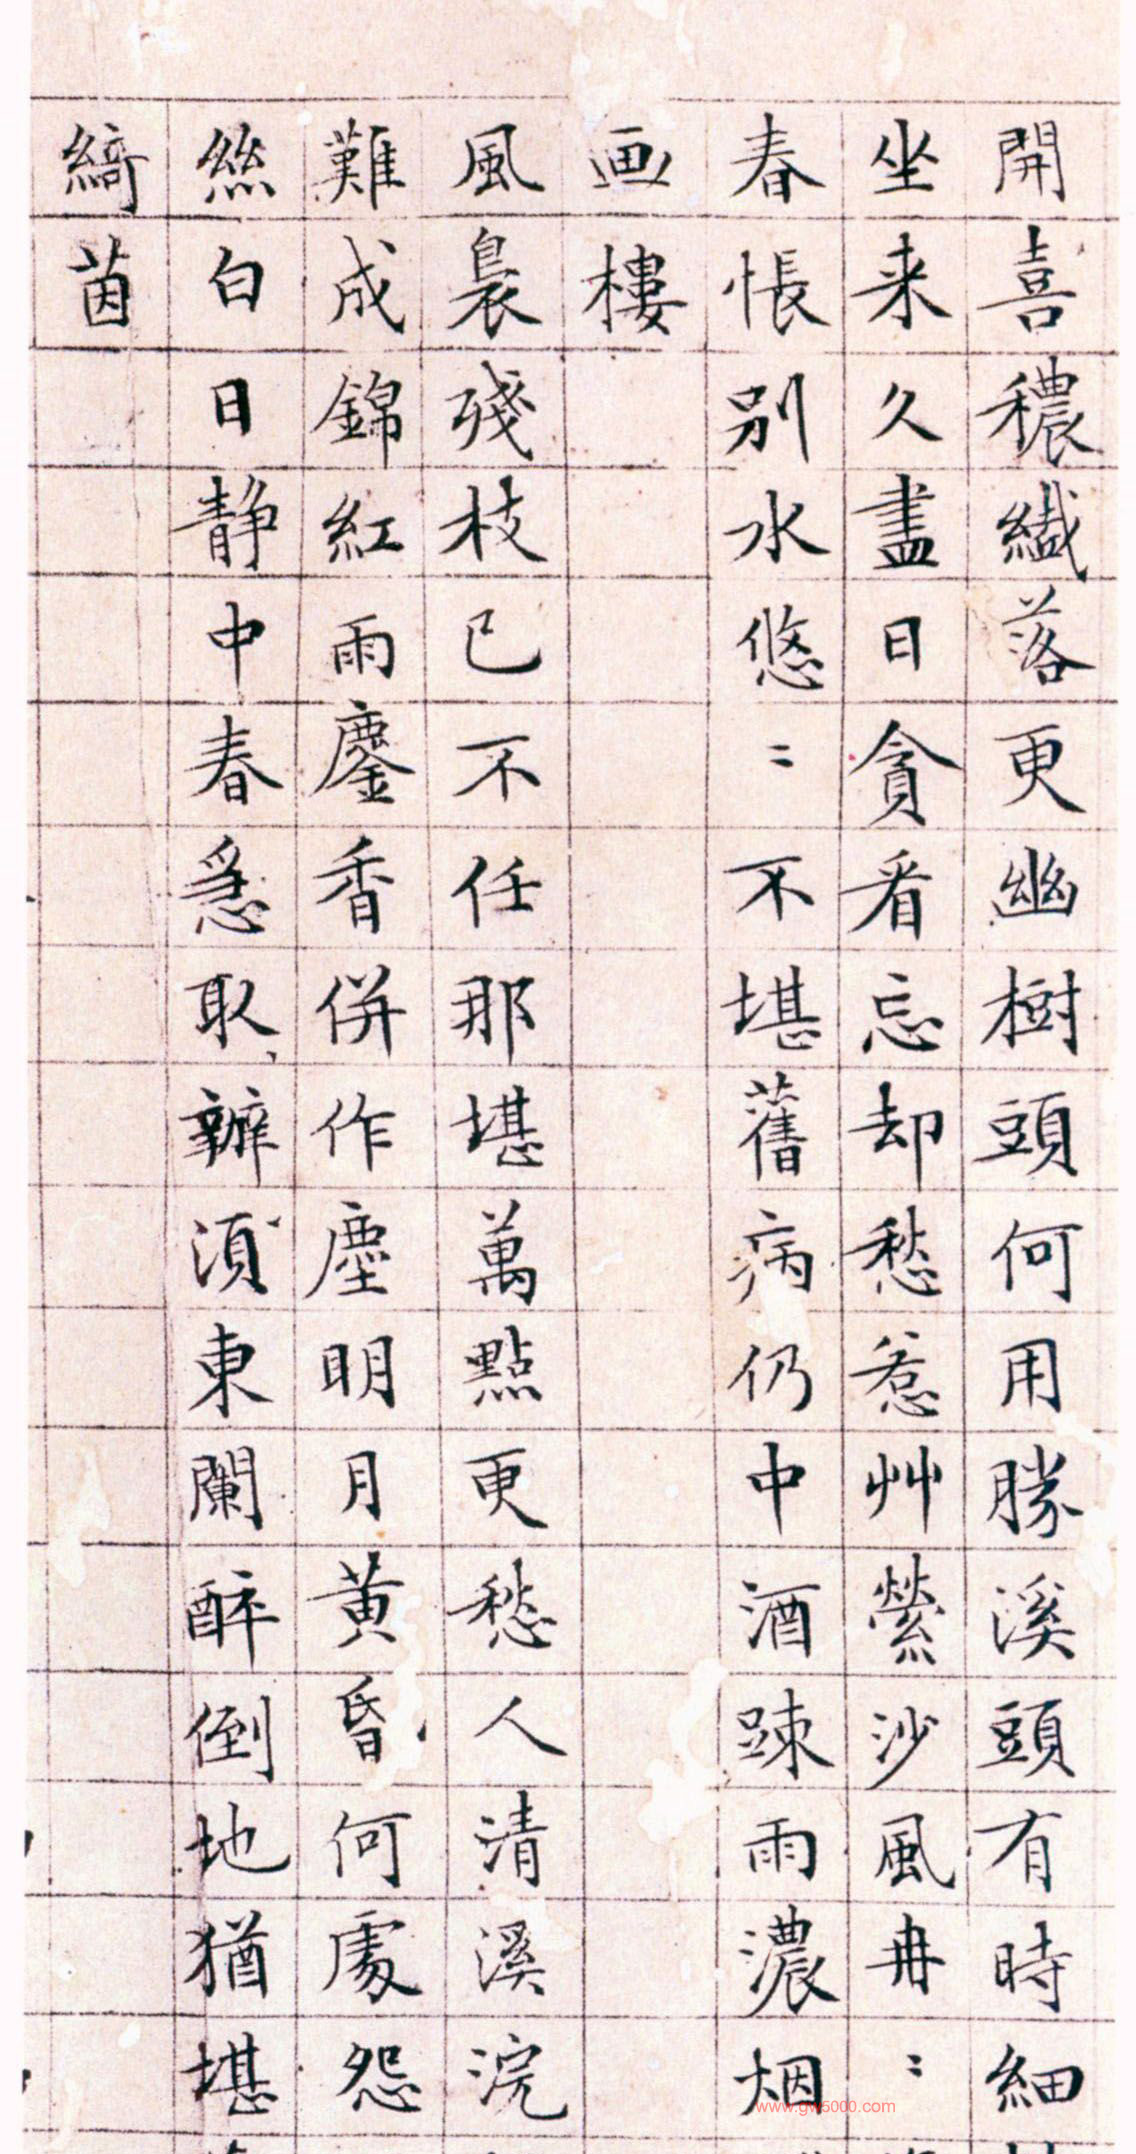 開喜穠纎落更幽樹頭何用勝溪頭有時細
坐来久盡日貪看忘却愁惹艸縈沙風冉〻
春悵別水悠〻不堪舊病仍中酒踈雨濃烟
画樓
風裊殘枝已不任那堪萬點更愁人清溪浣
難成錦紅雨鏖香併作塵明月黃昏何處怨
絲白日靜中春急取辦湏東闌醉倒地猶堪
綺茵
www.gw5000.com